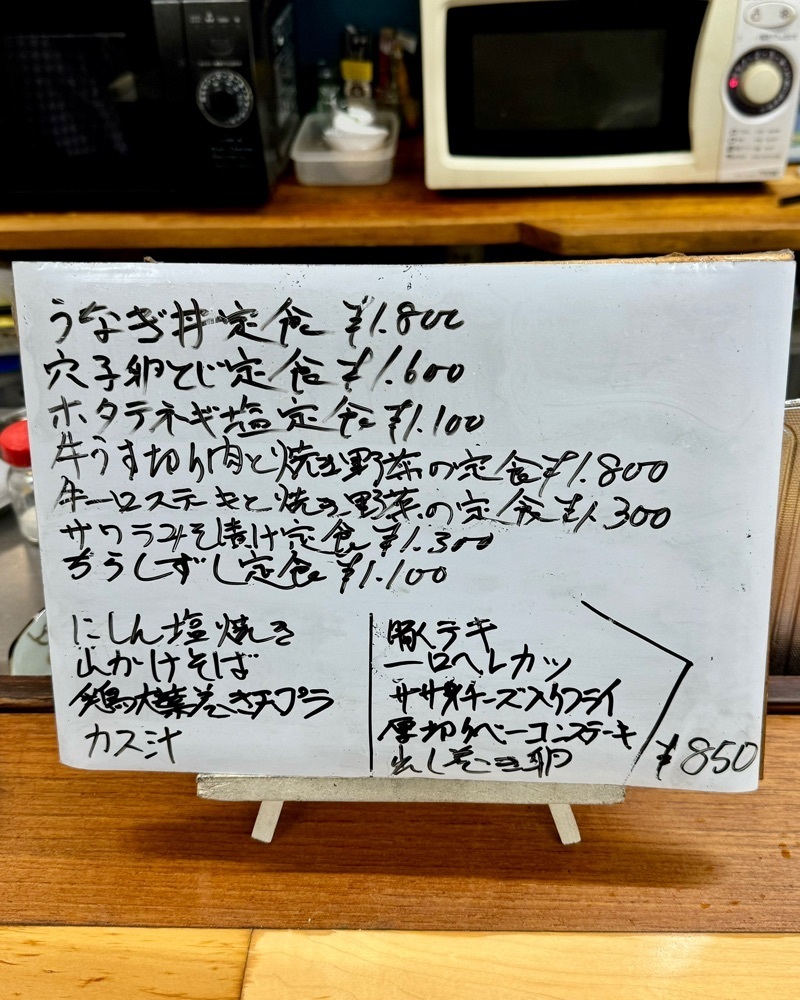 うなぎ丼定食 ¥1.800
穴子卵とじ定食 ¥1.600
ホタテネギ塩定食 ¥1.100
牛うす切り肉と焼き野菜の定食 ¥1.800
牛一口ステーキと焼き野菜の定食 ¥1.300
サワラみそ漬け定食 ¥1.300
ちらしずし定食 ¥1.100
にしん塩焼き
山かけそば
鶏の大葉巻き天プラ
カス汁
豚テキ
一口ヘレカツ
ササ身チーズ入りフライ
厚切りベーコンステーキ
出し巻き卵
¥850